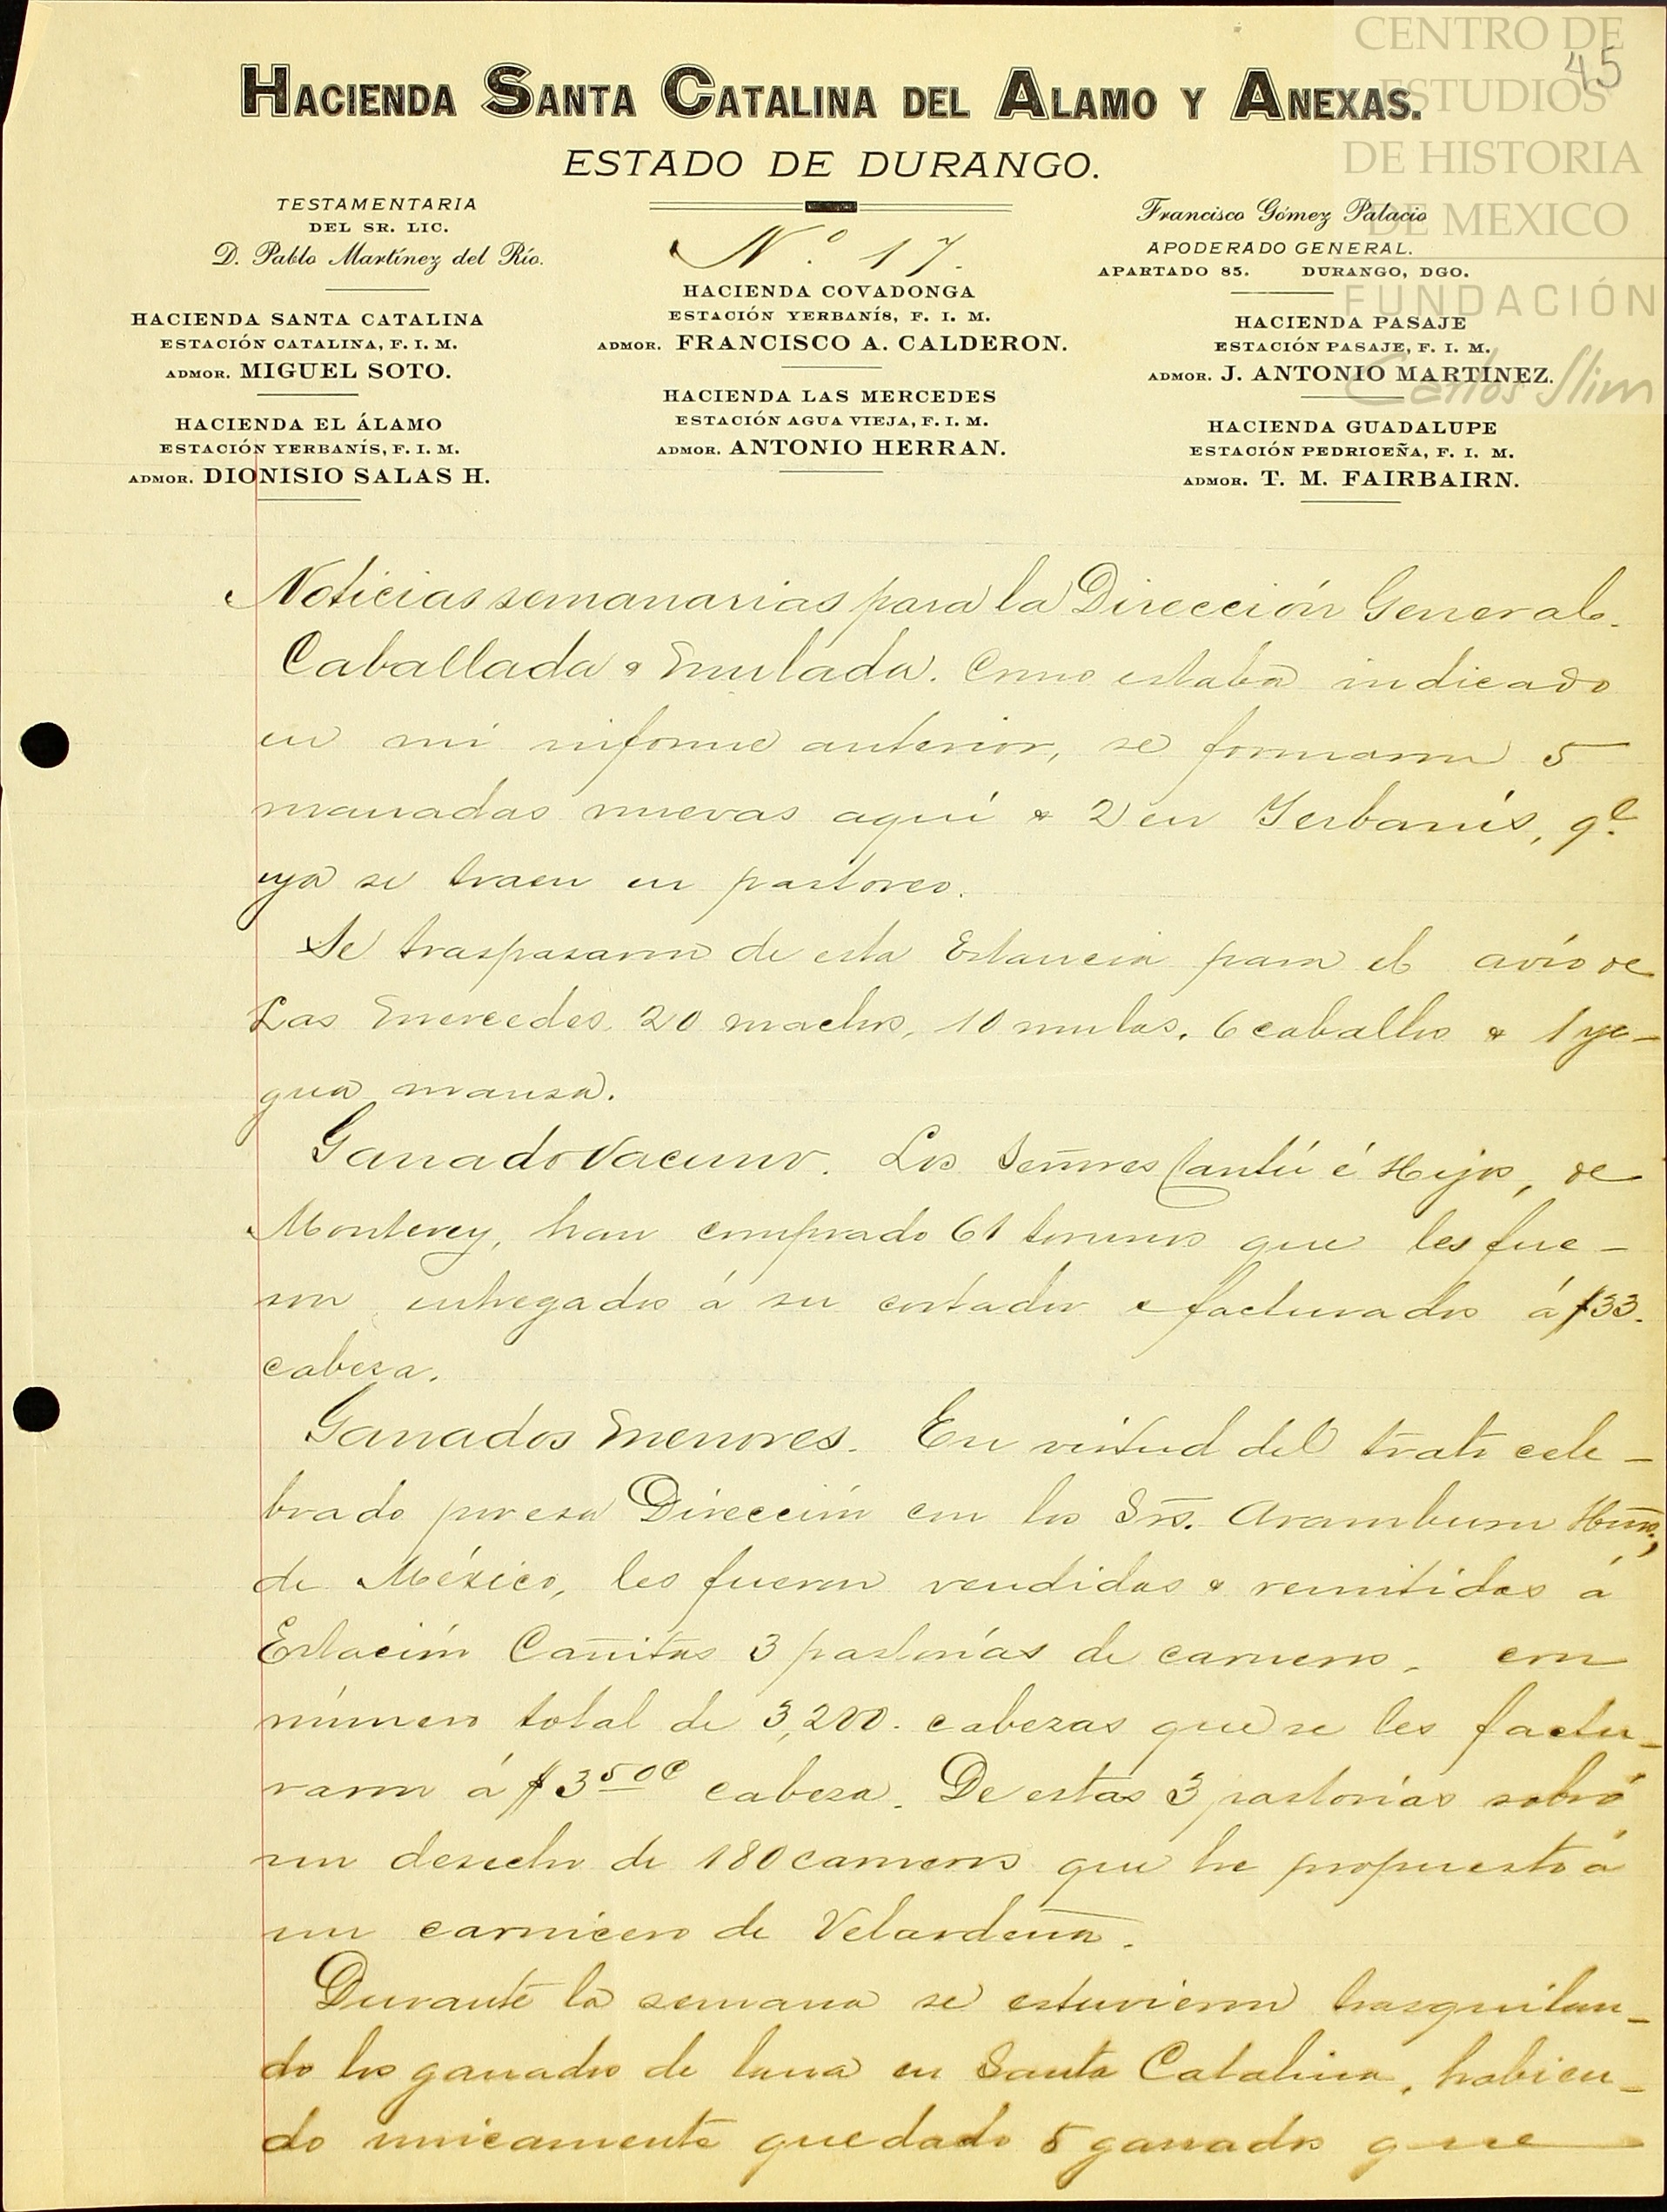 CENTRO DE
ESTUDIOS
DE HISTORIA
DE MEXICO
FUNDACIÓN
Carlos Slim
45
HACIENDA SANTA CATALINA DEL ALAMO Y ANEXAS.
ESTADO DE DURANGO.
TESTAMENTARIA
DEL SR. LIC.
D. Pablo Martínez del Río.
HACIENDA SANTA CATALINA
ESTACIÓN CATALINA, F. I. M.
ADMOR. MIGUEL SOTO.
HACIENDA EL ÁLAMO
ESTACIÓN YERBANÍS, F. I. M.
ADMOR. DIONISIO SALAS H.
Nº. 17.
HACIENDA COVADONGA
ESTACIÓN YERBANÍS, F. I. M.
ADMOR. FRANCISCO A. CALDERON.
HACIENDA LAS MERCEDES
ESTACIÓN AGUA VIEJA, F. I. M.
ADMOR. ANTONIO HERRAN.
Francisco Gómez Palacio
APODERADO GENERAL.
APARTADO 85. DURANGO, DGO.
HACIENDA PASAJE
ESTACIÓN PASAJE, F. I. M.
ADMOR. J. ANTONIO MARTINEZ.
HACIENDA GUADALUPE
ESTACIÓN PEDRICEÑA, F. I. M.
ADMOR. T. M. FAIRBAIRN.
Noticias semanarias para la Dirección General.
Caballada & Mulada. Como estaba indicado
en mi informe anterior, se formaron 5
manadas nuevas aquí & 2 en Yerbanís, qe.
ya se traen en pastoreo.
Se traspasaron de esta Estancia para el avío de
Las Mercedes. 20 machos, 10 mulas, 6 caballos & 1 ye-
gua mansa.
Ganado Vacuno. Los Señores Cantú é Hijos, de
Monterey, han comprado 61 torunos que les fue-
ron entregados á su cortador e facturados á $33.
cabeza.
Ganados Menores. En virtud del trato cele-
brado por esa Dirección con los Srs. Aramburu Hnos;
de México, les fueron vendidas & remitidas á
Estación Cañitas 3 pastorías de carneros, con
número total de 3,200. cabezas que se les factu-
raron á $3 50c cabeza. De estas 3 pastorías sobró
un desecho de 180 carneros que he propuesto á
un carnicero de Velardeña.
Durante la semana se estuvieron trasquilan-
do los ganados de lana en Santa Catalina, habien-
do unicamente quedado 5 ganados que